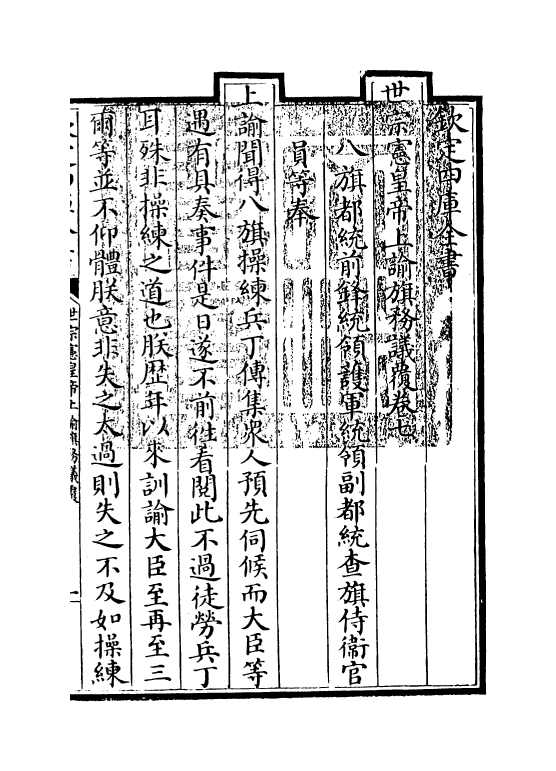 欽定四庫全書
世宗憲皇帝上諭旗務議覆卷七
八旗都統前鋒統領護軍統領副都統查旗侍衛官
員等奉
上諭聞得八旗操練兵丁傳集衆人預先伺候而大臣等
遇有具奏事件是日遂不前徃看閱此不過徒勞兵丁
耳殊非操練之道也朕歴年以來訓諭大臣至再至三
爾等並不仰體朕意非失之太過則失之不及如操練
世宗憲皇帝上諭旗務議覆
一